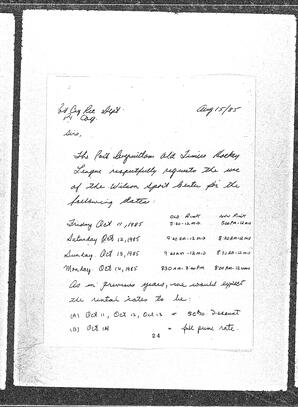 Aug 15/85
Pt Coq Rec Dept.
Pt Coq.
Sirs,
The Port Coquitlam Old Timers Hockey
League respectfully requests the use
of the Wilson Sport Center for the
following dates:
OLD RINK NEW RINK
Friday Oct 11, 1985
Saturday Oct 12, 1985 8:30 AM-12 MID
Sunday. Oct 13, 1985 8:30 AM-12 MID
Monday. Oct 14, 1985 8:30 AM-
As in previous years, we would expect
the rental rates to be:
(A) Oct 11, Oct 12, Oct 13 = 50% Discount
(B) Oct 14 = full prime rate.
24